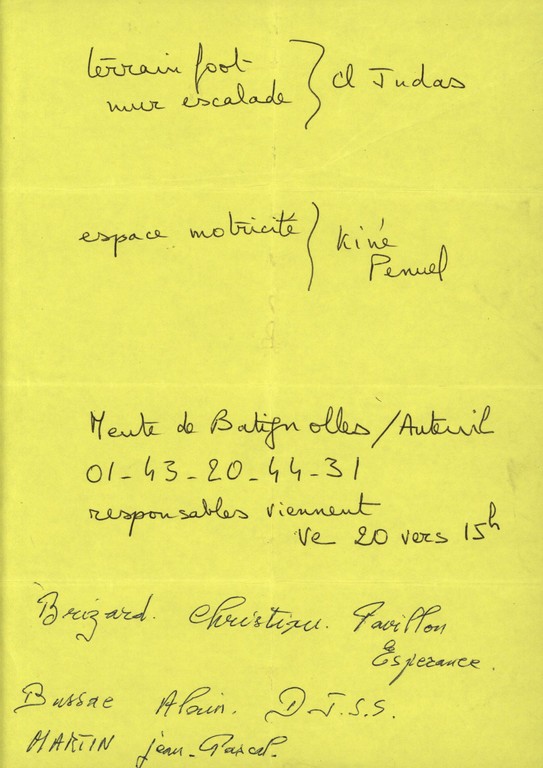 terrain foot
mur escalade } cl Judas
espace motricité } Kiné
Penuel
Meute de Batignolles / Auteuil
01-43-20-44-31
responsables viennent
ve 20 vers 15h
Brizard. Christian. Pavillon
Esperance.
Bussac Alain. D.J.S.S.
MARTIN jean-Pascal.